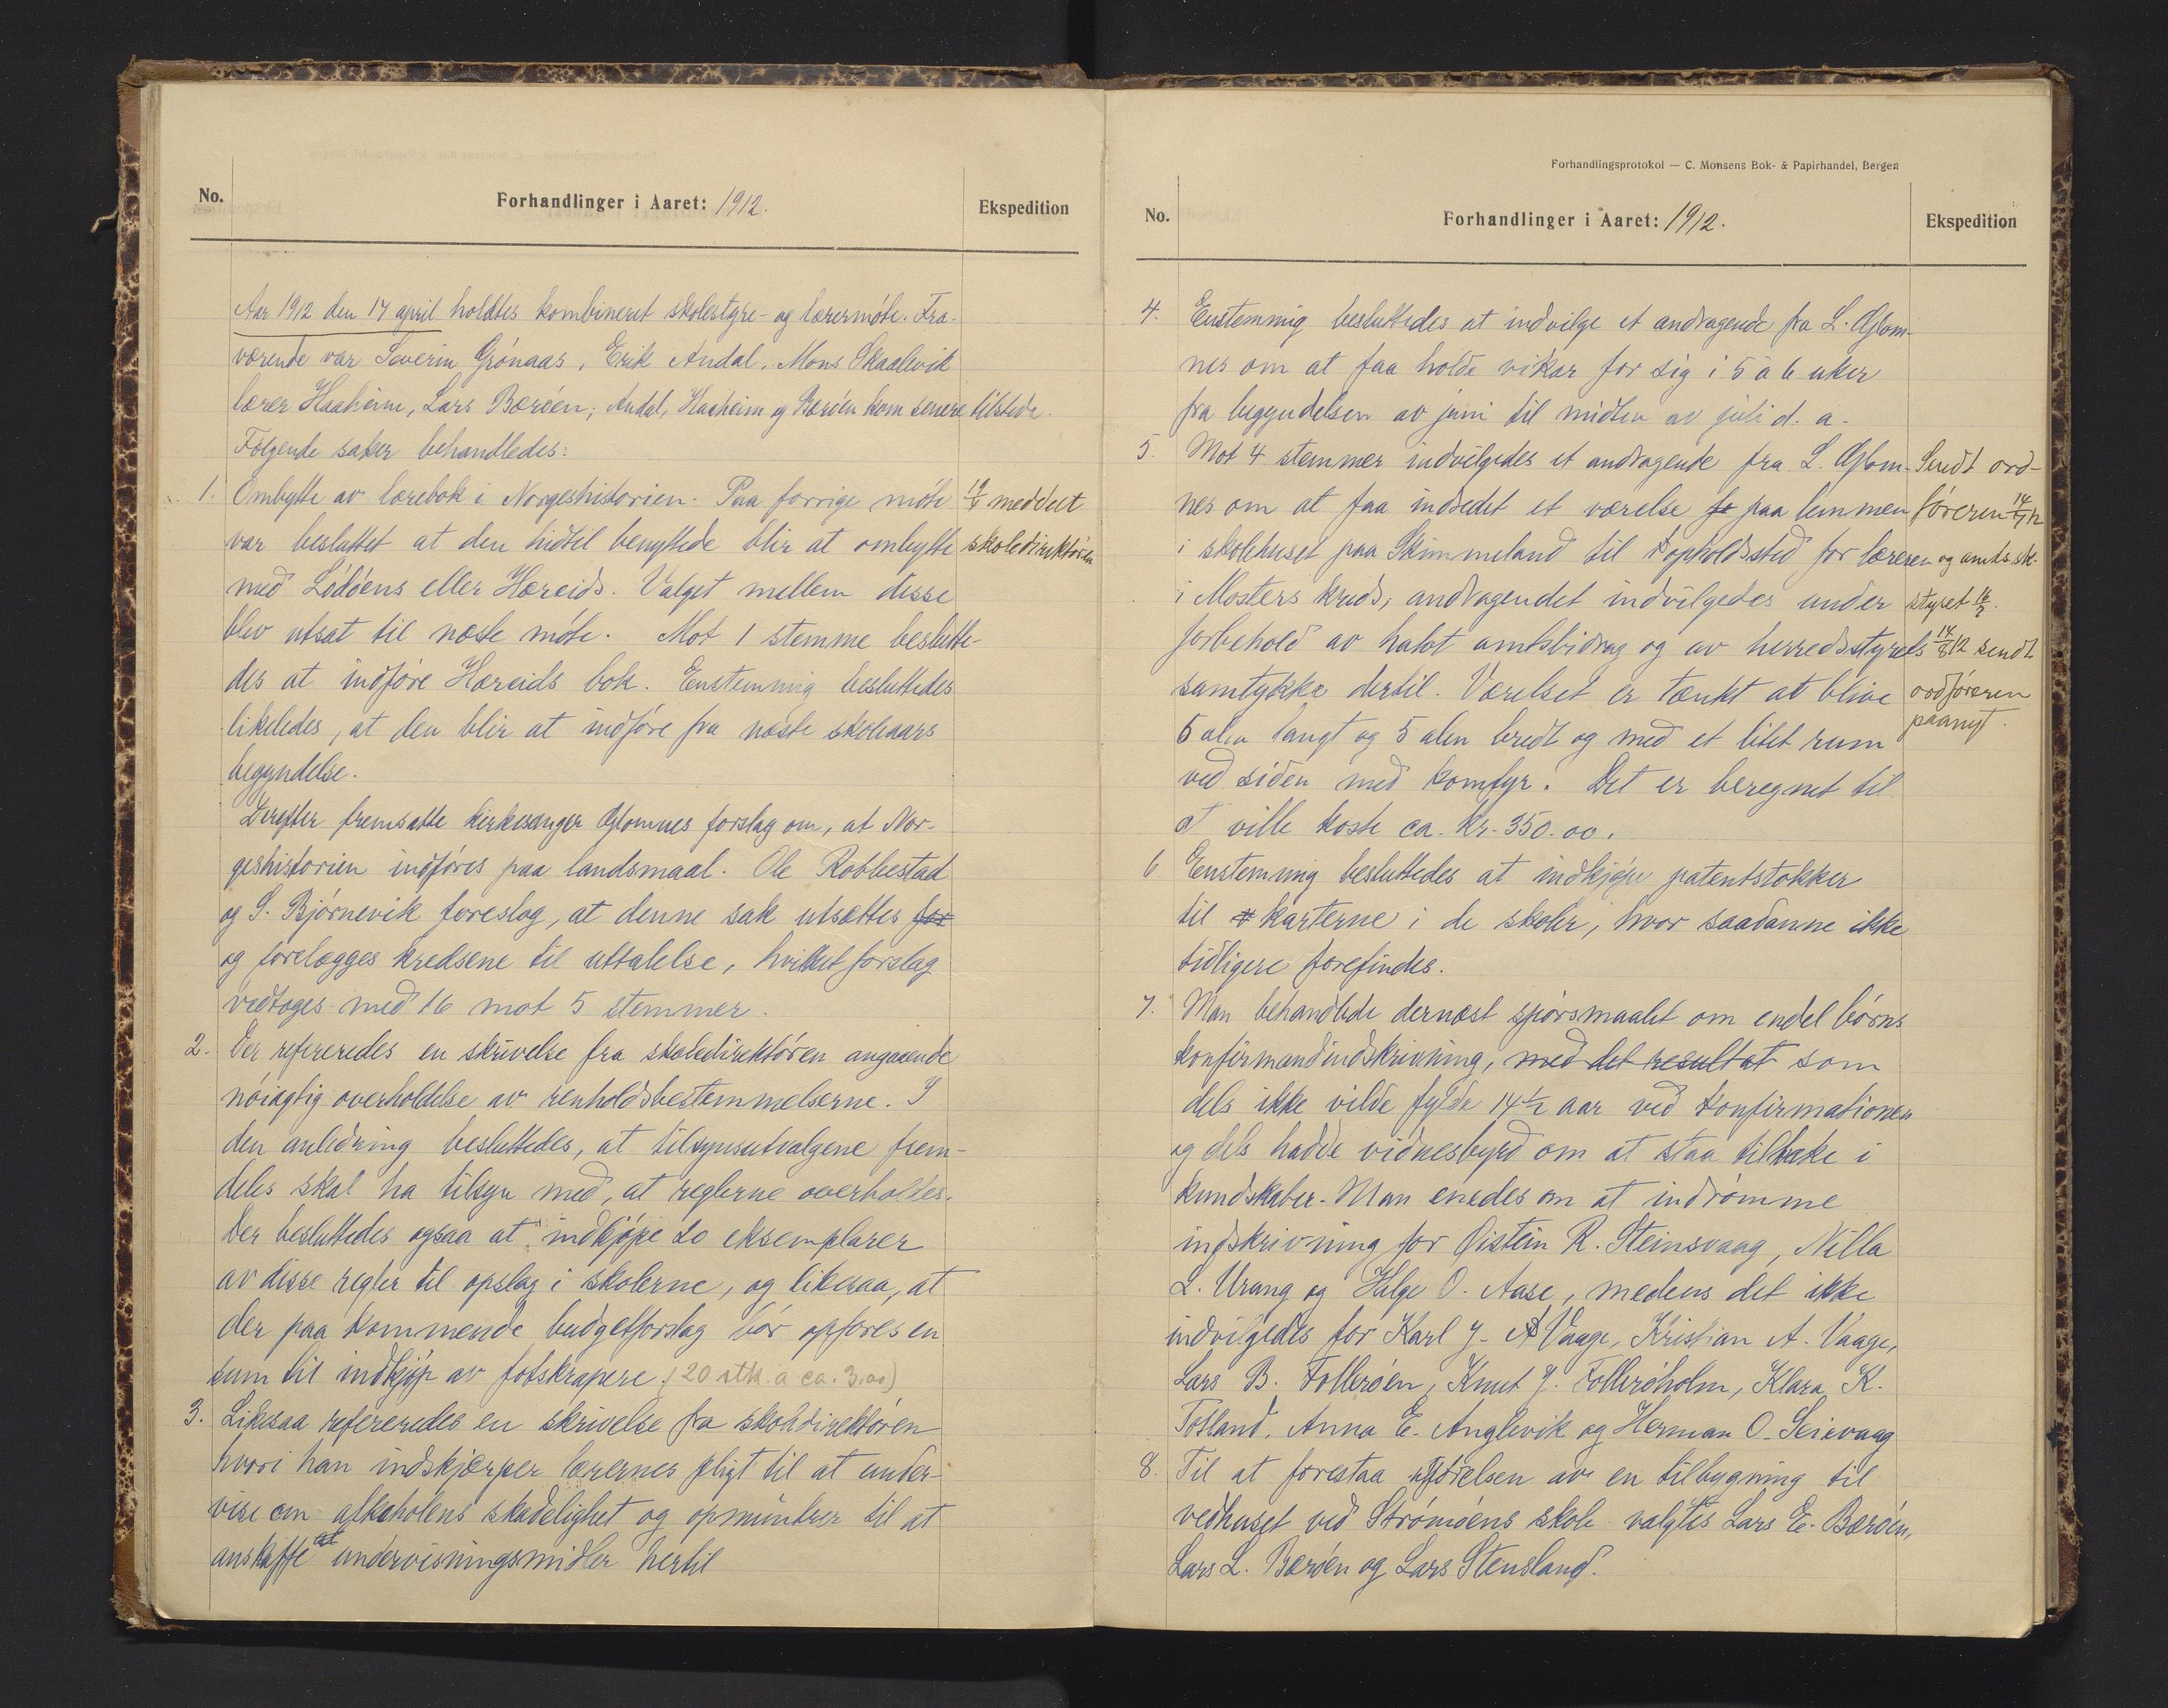 No.
Forhandlinger i Aaret: 1912.
Ekspedition
Aar 1912 den 17 april holdtes kombineret skolestyre- og lærermøte. Fra-
værende var Severin Grönaas, Erik Andal, Mons Skaalevik
lærer Haaheim, Lars Bæröen; Andal, Haaheim og Bæröen kom senere tilstede.
Følgende saker behandledes:
1. Ombytte av lærebok i Norgeshistorien. Paa forrige möte
var besluttet at den hidtil benyttede blir at ombytte
med Lödöens eller Hæreids. Valget mellem disse
blev utsat til næste möte. Mot 1 stemme beslutte-
des at indføre Hæreids bok. Enstemmig besluttedes
likeledes, at den blir at indføre fra næste skoleaars
begyndelse.
19/4 meddelt
skoledirektøren
Derefter fremsatte kirkesanger Glomnes forslag om, at Nor-
geshistorien indføres paa landsmaal. Ole Robbestad
og S. Björnevik foreslog, at denne sak utsættes for
og forelægges kredsene til uttalelse, hvilket forslag
vedtoges med 16 mot 5 stemmer.
2. Der refereredes en skrivelse fra skoledirektören angaaende
nöiagtig overholdelse av renholdsbestemmelserne. I
den anledning besluttedes, at tilsynsutvalgene frem-
deles skal ha tilsyn med, at reglerne overholdes.
Der besluttedes ogsaa at indkjøpe 20 eksemplarer
av disse regler til opslag i skolerne, og likesaa, at
der paa kommende budgetforslag bör opføres en
sum til indkjöp av fotskrapere. (20 stk. a ca. 3.00)
3. Likesaa refereredes en skrivelse fra skoledirektören
hvori han indskjærper lærernes pligt til at under-
vise om alkoholens skadelighet og opmuntrer til at
anskaffe undervisningsmidler hertil
Forhandlingsprotokol — C. Monsens Bok- & Papirhandel, Bergen
No.
Forhandlinger i Aaret: 1912.
Ekspedition
4. Enstemmig besluttedes at indvilge et andragende fra L. Glom-
nes om at faa holde vikar for sig i 5 à 6 uker
fra begyndelsen av juni til midten av juli d. a.
5. Mot 4 stemmer indvilgedes et andragende fra L. Glom-
nes om at faa indredet et værelse paa lemmen
i skolehuset paa Skimmeland til opholdssted for læreren
i Mosters kreds; andragendet indvilgedes under
forbehold av halvt amtsbidrag og av herredsstyrets
samtykke dertil. Værelset er tænkt at blive
5 alen langt og 5 alen bredt og med et litet rum
ved siden med komfyr. Det er beregnet til
at ville koste ca. kr. 350.00.
Sendt ord-
føreren
og amts.sk.
styret
14/8 12 sendt
ordføreren
paanyt.
6 Enstemmig besluttedes at indkjøpe patentstokker
til karterne i de skoler, hvor saadanne ikke
tidligere forefindes.
7. Man behandlede dernæst spörsmaalet om endel börns
konfirmandindskrivning, med det resultat som
dels ikke vilde fylde 14 1/2 aar ved konfirmationen
og dels hadde vidnesbyrd om at staa tilbake i
kundskaber. Man enedes om at indrømme
indskrivning for Øistein R. Steinsvaag, Nilla
L. Urang og Helge O. Aase, medens det ikke
indvilgedes for Karl J. Vaage, Kristian A. Vaage,
Lars B. Folleröen, Knut J. Follerøholm, Klara K.
Totland, Anna E. Anglevik og Herman O. Seievaag
8. Til at forestaa opförelsen av en tilbygning til
vedhuset ved Strömöens skole valgtes Lars E. Bæröen,
Lars L. Bæröen og Lars Stensland.